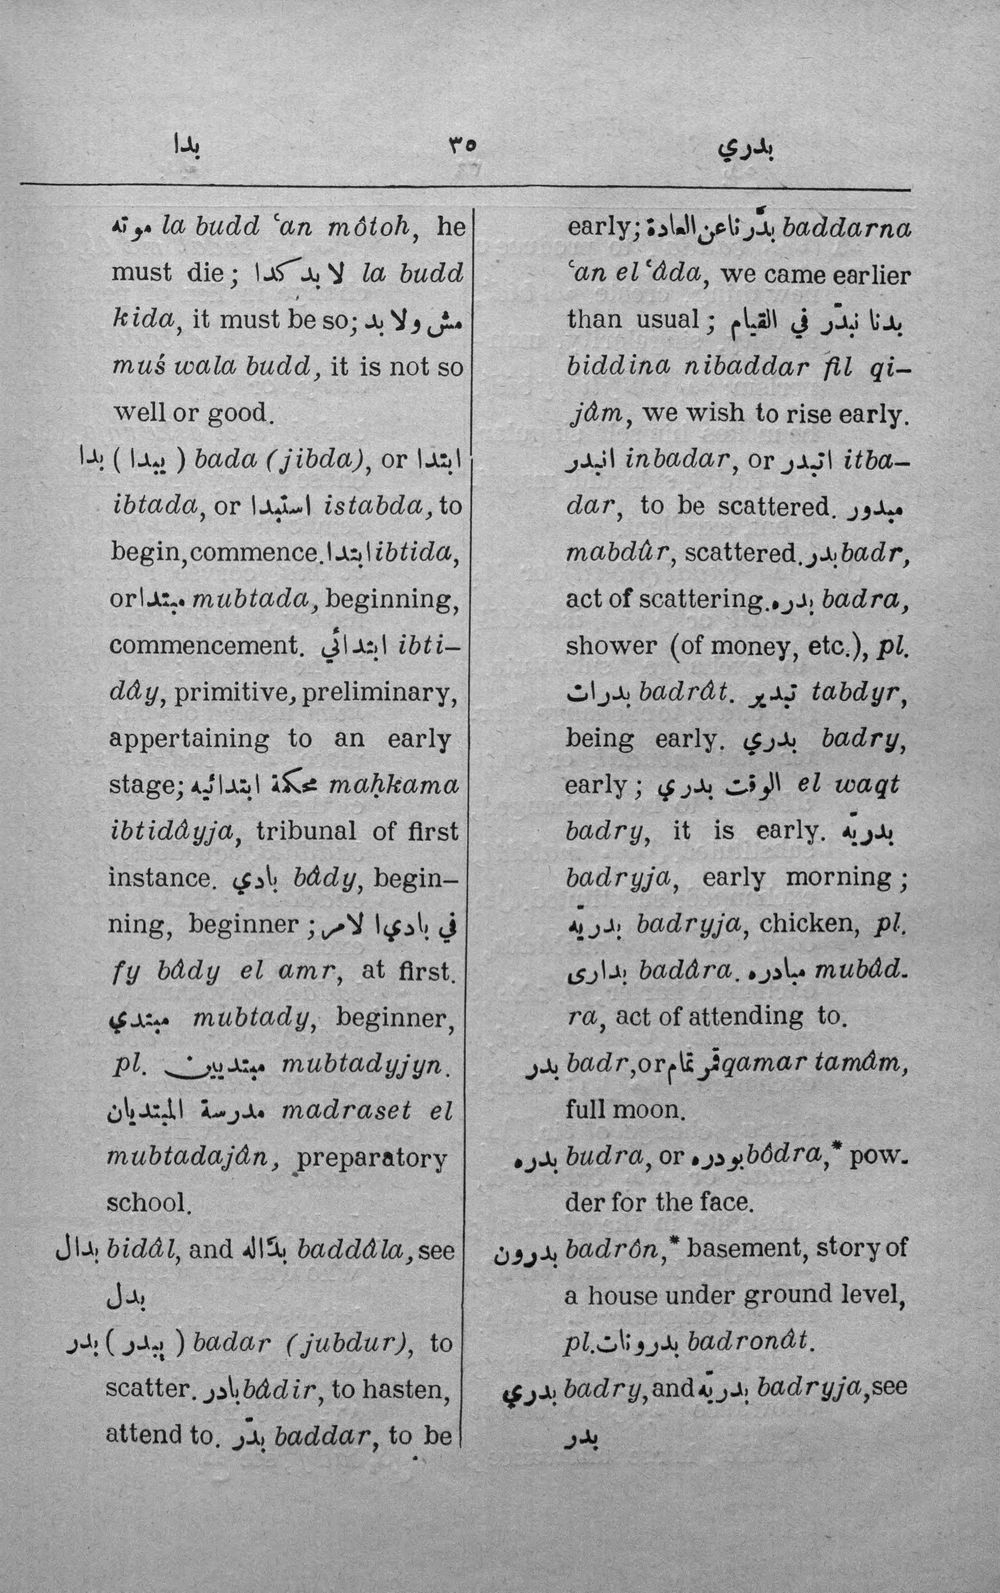 بدا ٣٥ بدري
موته la budd ʿan môtoh, he
must die; لا بد كدا la budd
kida, it must be so; مش ولا بد
muś wala budd, it is not so
well or good.
بدا ( يبدا ) bada (jibda), or ابتدا
ibtada, or استبدا istabda, to
begin, commence. ابتدا ibtida,
or مبتدا mubtada, beginning,
commencement. ابتدائي ibti-
dây, primitive, preliminary,
appertaining to an early
stage; محكمة ابتدائيه maḥkama
ibtidâyja, tribunal of first
instance. بادي bâdy, begin-
ning, beginner; في بادي الامر
fy bâdy el amr, at first.
مبتدي mubtady, beginner,
pl. مبتديين mubtadyjyn.
مدرسة المبتديان madraset el
mubtadajân, preparatory
school.
بدال bidâl, and بدّاله baddâla, see
بدل
بدر ( يبدر ) badar (jubdur), to
scatter. بادر bâdir, to hasten,
attend to. بدّر baddar, to be
early; بدّرنا عن العادة baddarna
ʿan el ʿâda, we came earlier
than usual; بدنا نبدّر في القيام
biddina nibaddar fil qi-
jâm, we wish to rise early.
انبدر inbadar, or اتبدر itba-
dar, to be scattered. مبدور
mabdûr, scattered. بدر badr,
act of scattering. بدره badra,
shower (of money, etc.), pl.
بدرات badrât. تبدير tabdyr,
being early. بدري badry,
early; الوقت بدري el waqt
badry, it is early. بدريّه
badryja, early morning;
بدريّه badryja, chicken, pl.
بدارى badâra. مبادره mubâd-
ra, act of attending to.
بدر badr, or قمر تمام qamar tamâm,
full moon.
بدره budra, or بودره bôdra,* pow-
der for the face.
بدرون badrôn,* basement, story of
a house under ground level,
pl. بدرونات badronât.
بدري badry, and بدريّه badryja, see
بدر